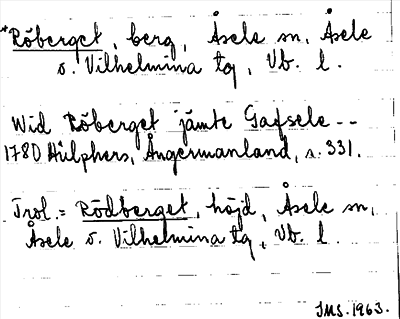 *Röberget, berg, Åsele sn, Åsele
o. Vilhelmina tg, Vb. l.
Wid Röberget jämte Gafsele --
1780 Hülphers, Ångermanland, s. 331.
Trol. = Rödberget, höjd, Åsele sn,
Åsele o. Vilhelmina tg, Vb. l.
IMS. 1963.